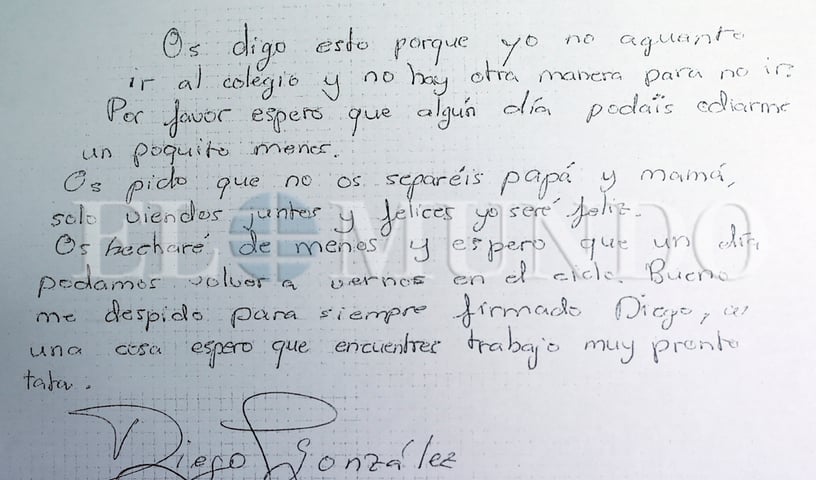 Os digo esto porque yo no aguanto
ir al colegio y no hay otra manera para no ir.
Por favor espero que algún día podaís odiarme
un poquito menos.
Os pido que no os separéis papá y mamá,
solo viendos juntos y felices yo seré feliz.
Os hecharé de menos y espero que un día
podamos volver a vernos en el cielo. Bueno
me despido para siempre firmado Diego,
una cosa espero que encuentres trabajo muy pronto
tata.
Diego González
EL MUNDO